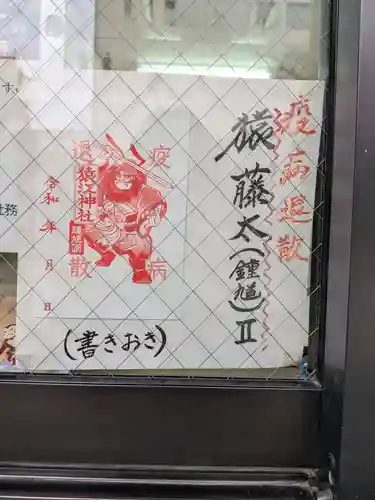 疫病退散
猿藤太(鍾馗)Ⅱ
疫病
退散
猿江神社
令和 年 月 日
(書きおき)
す。
社務